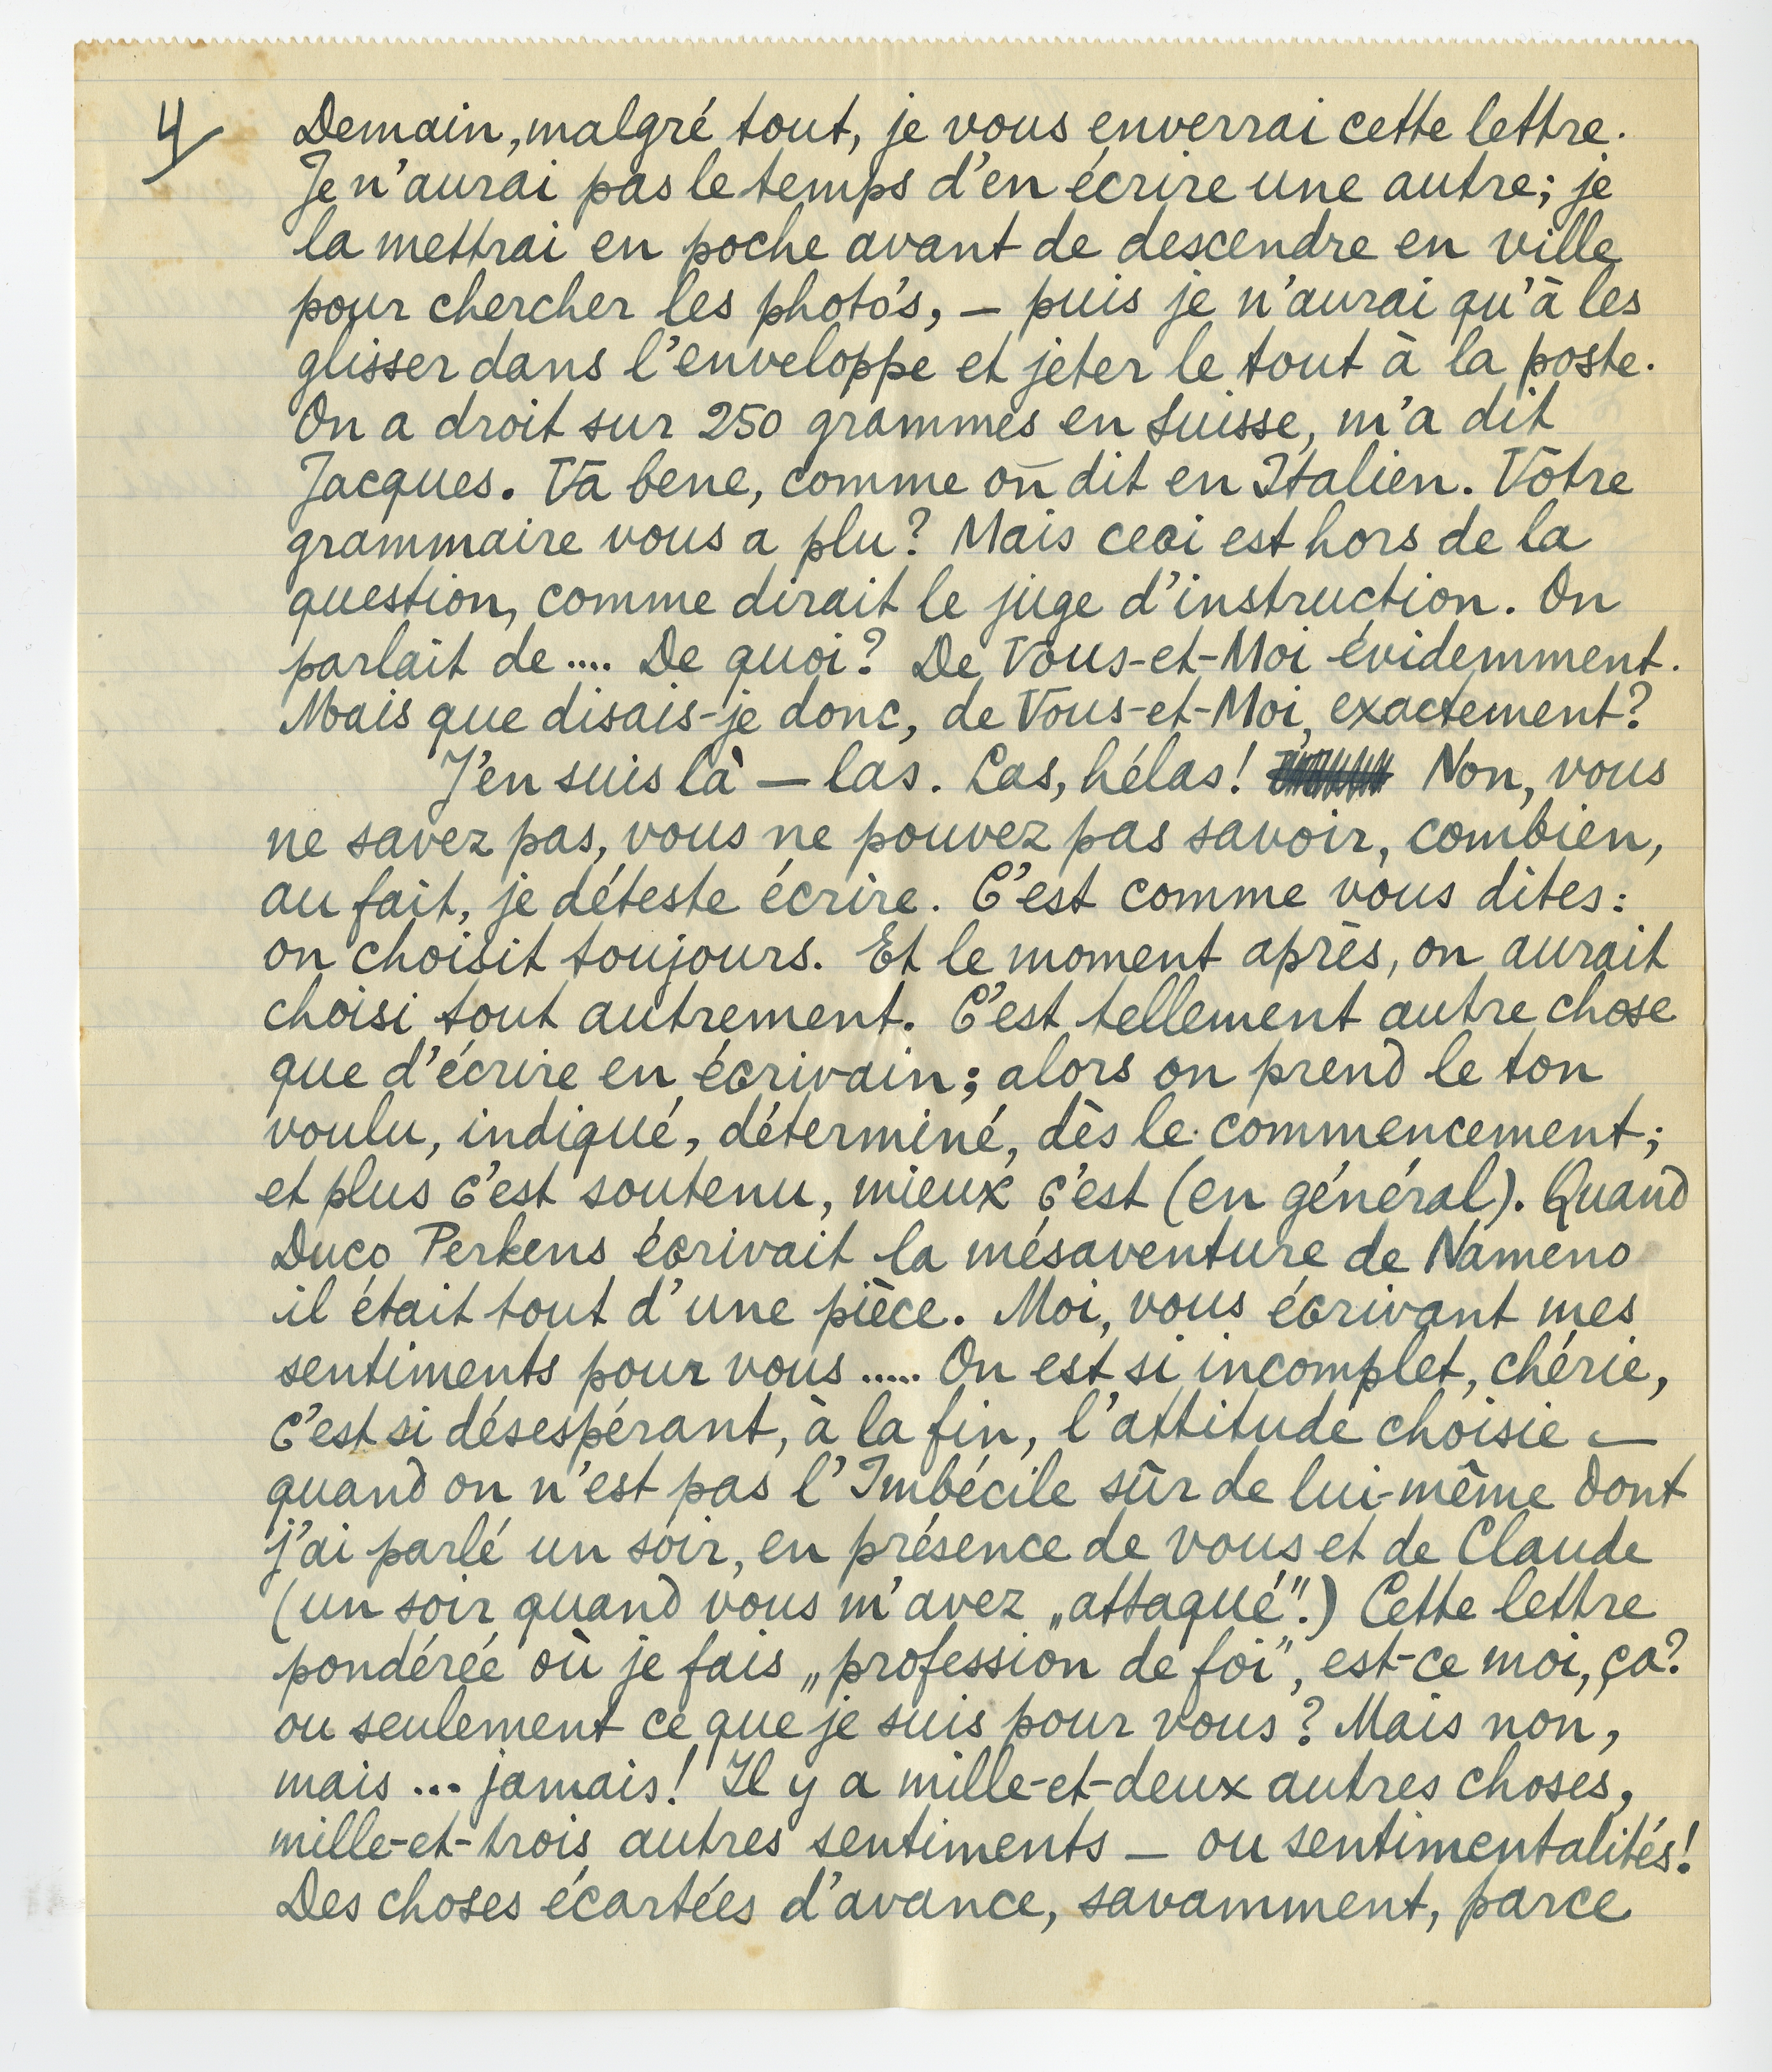 4/
Demain, malgré tout, je vous enverrai cette lettre.
Je n'aurai pas le temps d'en écrire une autre; je
la mettrai en poche avant de descendre en ville
pour chercher les photo's, — puis je n'aurai qu'à les
glisser dans l'enveloppe et jeter le tout à la poste.
On a droit sur 250 grammes en Suisse, m'a dit
Jacques. Va bene, comme on dit en Italien. Votre
grammaire vous a plu? Mais ceci est hors de la
question, comme dirait le juge d'instruction. On
parlait de .... De quoi? De Vous-et-Moi évidemment.
Mais que disais-je donc, de Vous-et-Moi, exactement?
J'en suis là — las. Las, hélas! Non, vous
ne savez pas, vous ne pouvez pas savoir, combien,
au fait, je déteste écrire. C'est comme vous dites:
on choisit toujours. Et le moment après, on aurait
choisi tout autrement. C'est tellement autre chose
que d'écrire en écrivain; alors on prend le ton
voulu, indiqué, déterminé, dès le commencement;
et plus c'est soutenu, mieux c'est (en général). Quand
Duco Perkens écrivait la mésaventure de Nameno
il était tout d'une pièce. Moi, vous écrivant mes
sentiments pour vous ..... On est si incomplet, chérie,
c'est si désespérant, à la fin, l'attitude choisie —
quand on n'est pas l'Imbécile sûr de lui-même dont
j'ai parlé un soir, en présence de vous et de Claude
(un soir quand vous m'avez „attaqué".) Cette lettre
pondérée où je fais „profession de foi", est-ce moi, ça?
ou seulement ce que je suis pour vous? Mais non,
mais ... jamais! Il y a mille-et-deux autres choses,
mille-et-trois autres sentiments — ou sentimentalités!
Des choses écartées d'avance, savamment, parce